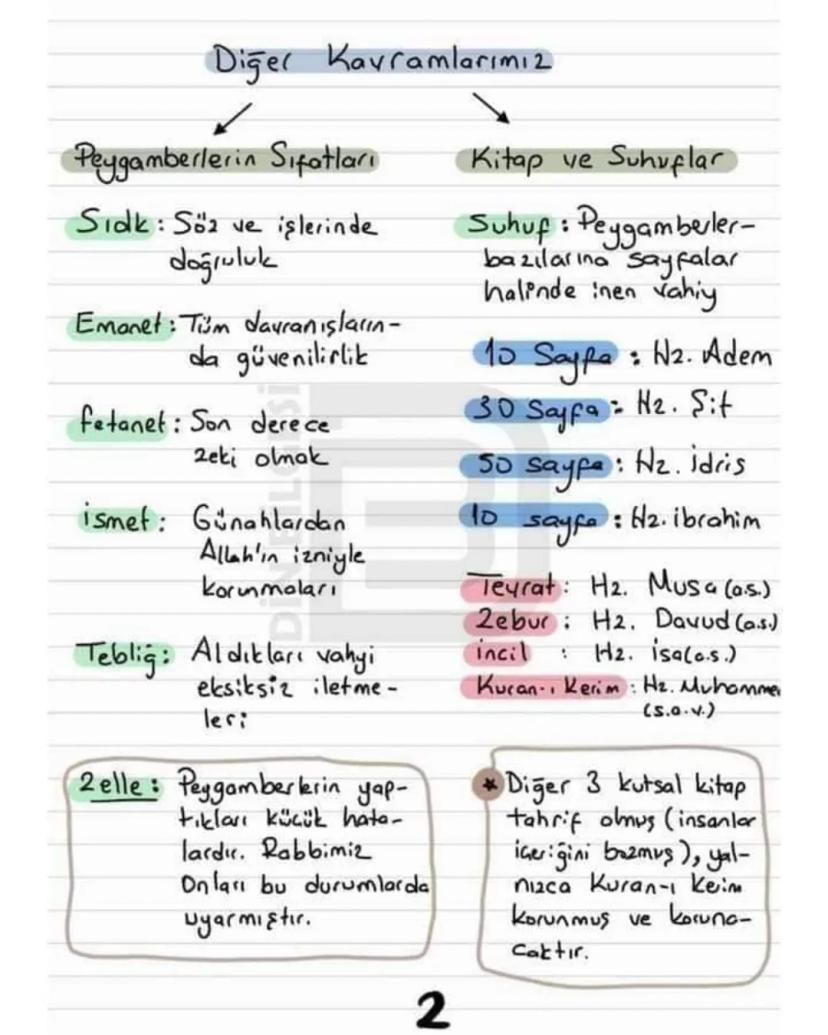 Diğer Kavramlarımız
Peygamberlerin Sıfatları
Sıdk: Söz ve işlerinde
doğruluk
Emanet: Tüm davranışların-
da güvenilirlik
fetanet: Son derece
zeki olmak
ismet: Günahlardan
Allah'ın izniyle
korunmaları
Tebliğ: Aldıkları vahyi
eksiksiz iletme-
leri
Zelle: Peygamberlerin yap-
tıkları küçük hata-
lardır. Rabbimiz
Onları bu durumlarda
uyarmıştır.
Kitap ve Suhuflar
Suhuf: Peygamberler-
bazılarına sayfalar
halinde inen vahiy
10 Sayfa: Hz. Adem
30 Sayfa: Hz. Şit
50 sayfa: Hz. İdris
10 sayfa: Hz. ibrahim
Tevrat: Hz. Musa (a.s.)
Zebur: Hz. Davud (a.s.)
incil : Hz. İsa(a.s.)
Kuran-ı Kerim: Hz. Muhamme
(s.a.v.)
* Diğer 3 kutsal kitap
tahrif olmuş (insanlar
içeriğini bozmuş), yal-
nızca Kuran-ı Kerim
korunmuş ve koruna-
caktır.
DİNBİLGİSİ
2